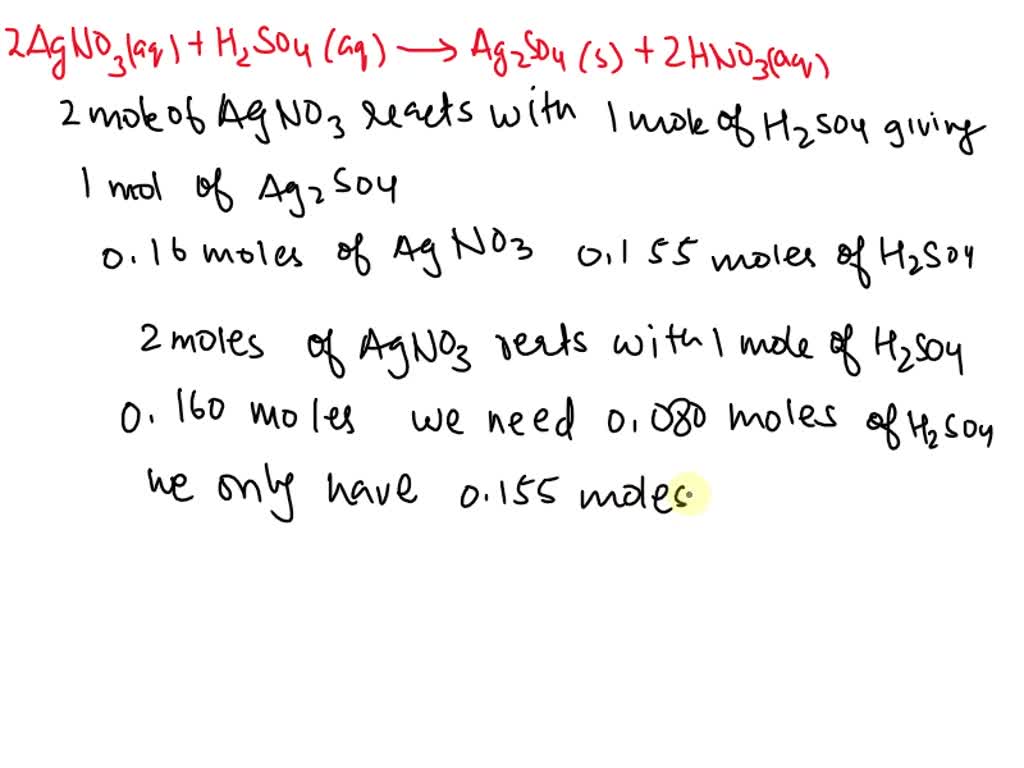 2AgNO₃(aq) + H₂SO₄(aq) ⟶ Ag₂SO₄(s) + 2HNO₃(aq)
2 mole of AgNO₃ reacts with 1 mole of H₂SO₄ giving
1 mol of Ag₂SO₄
0.16 moles of AgNO₃ 0.155 moles of H₂SO₄
2 moles of AgNO₃ reats with 1 mole of H₂SO₄
0.160 moles we need 0.080 moles of H₂SO₄
we only have 0.155 moles